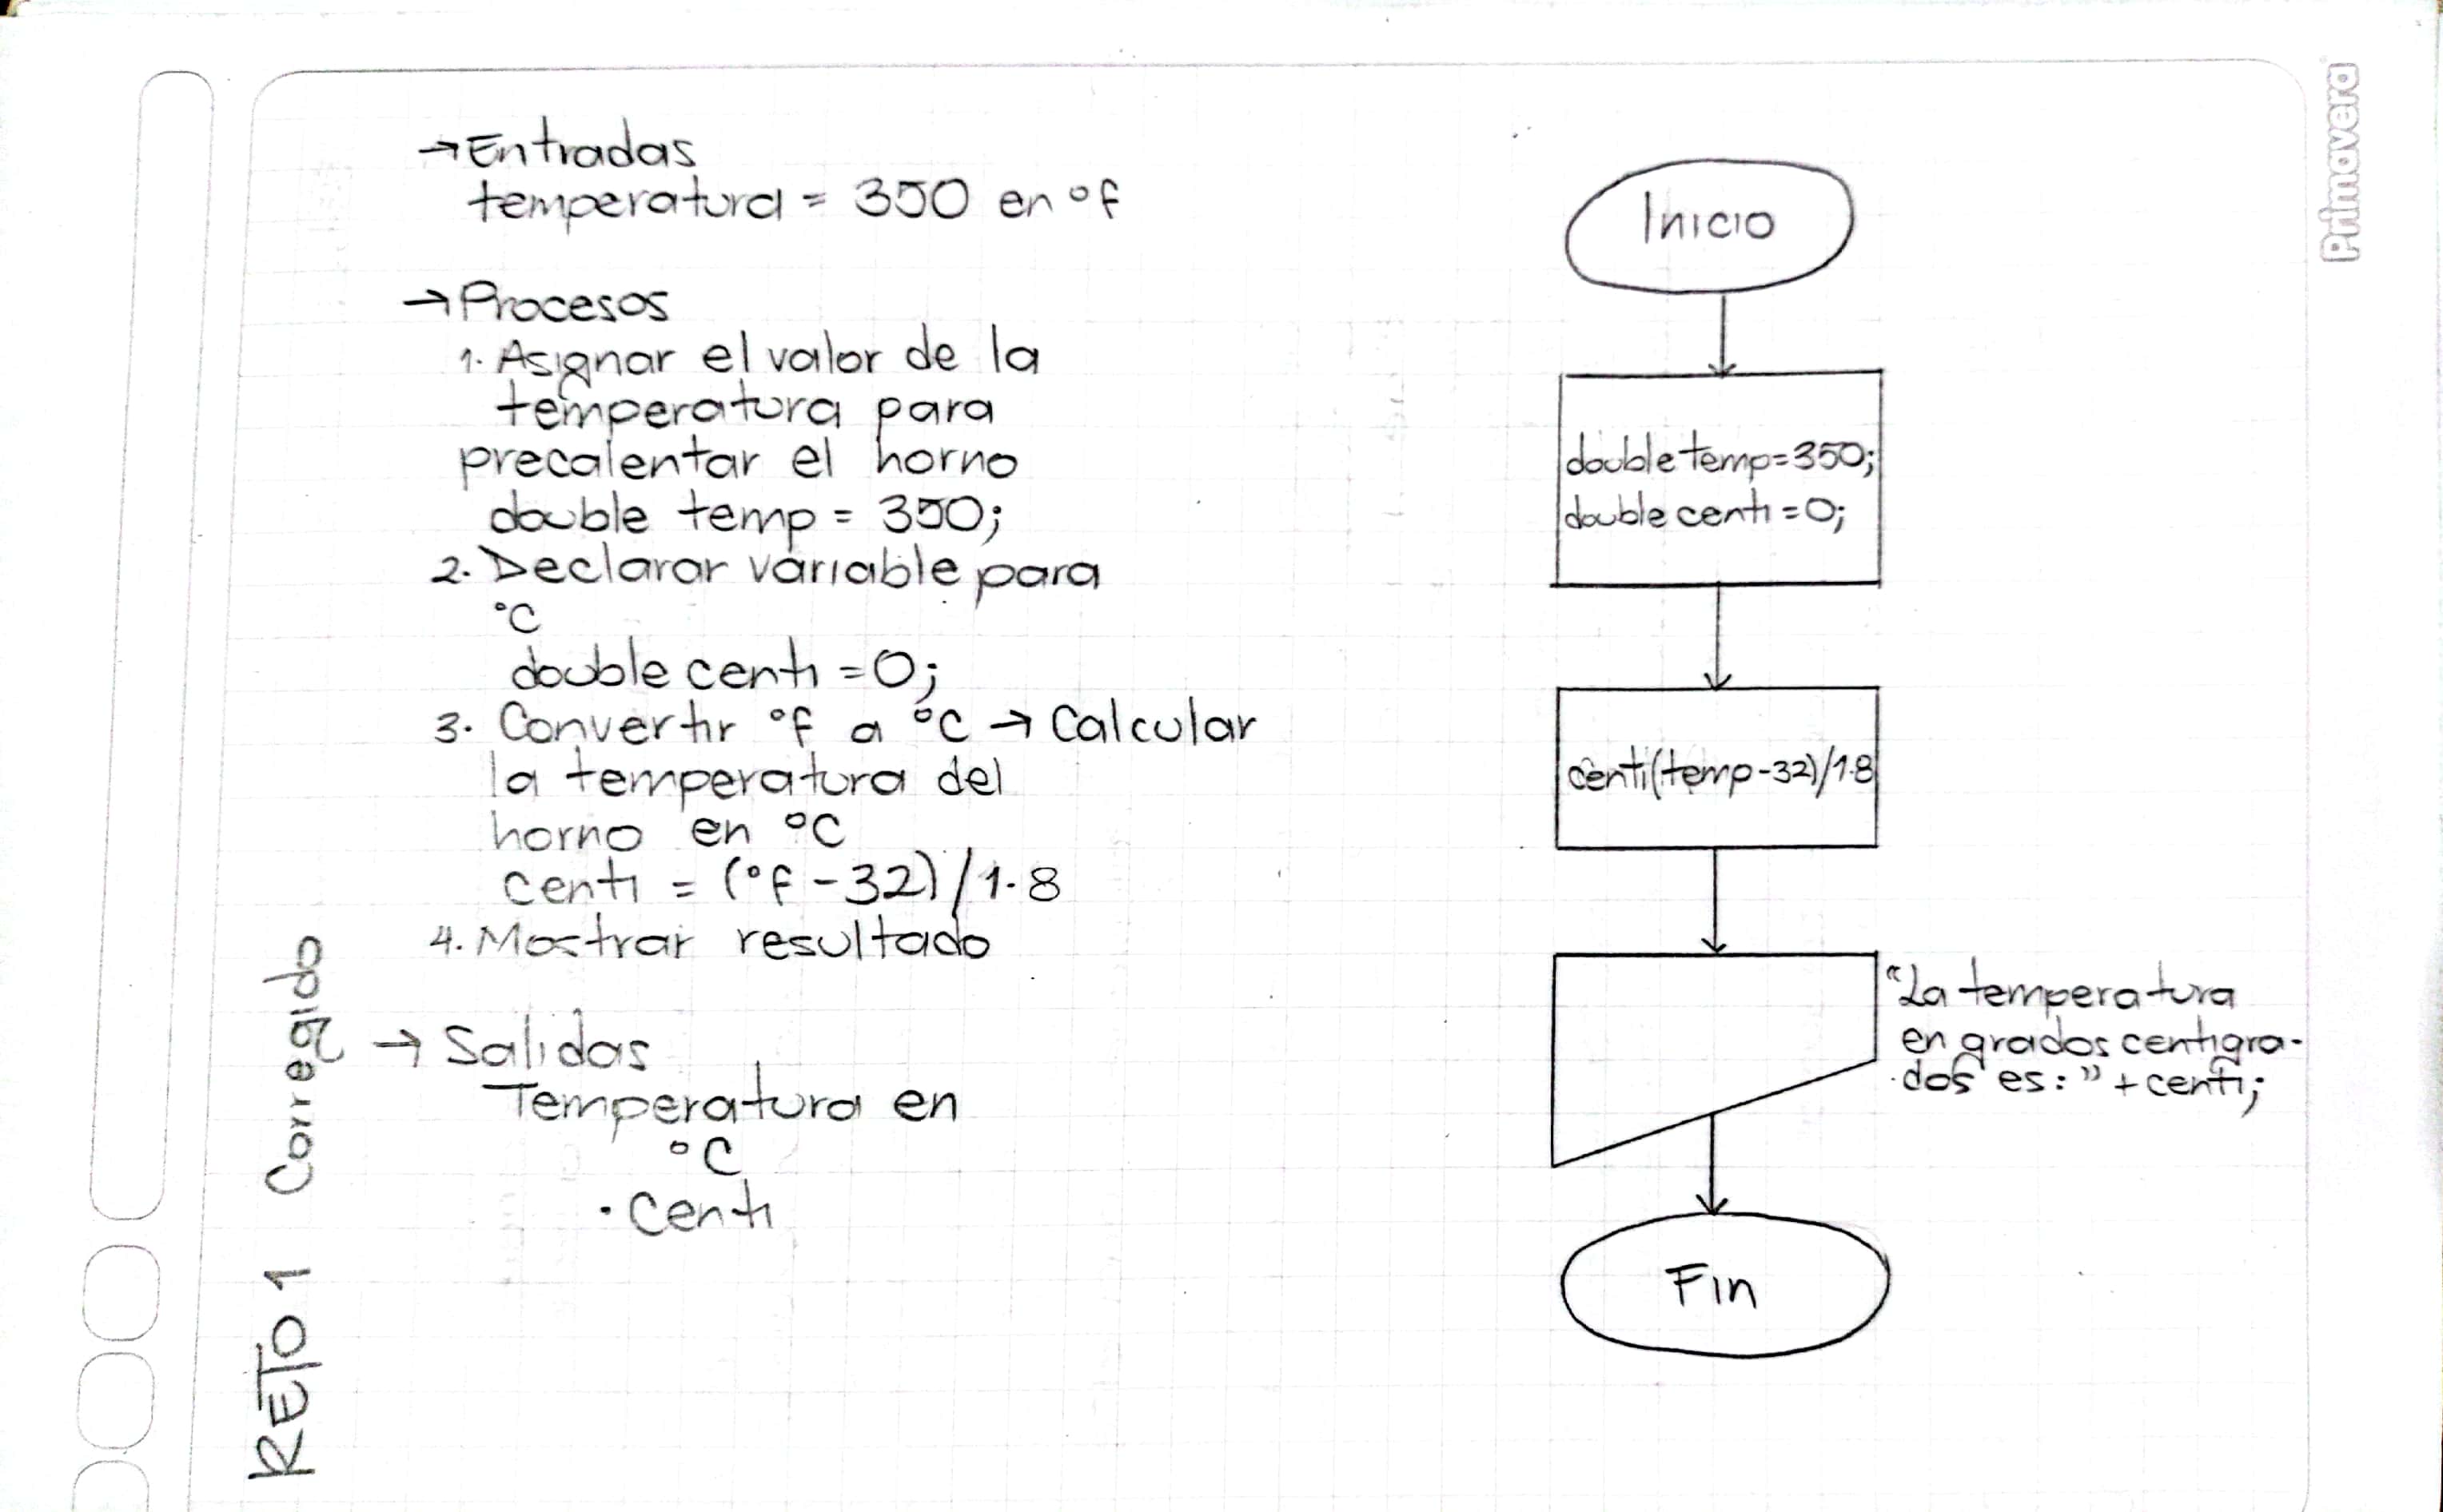 → Entradas
temperatura = 350 en °f
→ Procesos
1. Asignar el valor de la
temperatura para
precalentar el horno
double temp = 350;
2. Declarar variable para
°C
double centi = 0;
3. Convertir °f a °C → Calcular
la temperatura del
horno en °C
centi = (°f - 32) / 1.8
4. Mostrar resultado
→ Salidas
Temperatura en
°C
• Centi
RETO 1 Corregido
Inicio
double temp = 350;
double centi = 0;
centi(temp - 32)/1.8
"La temperatura
en grados centigra-
dos es: " + centi;
Fin
Primavera